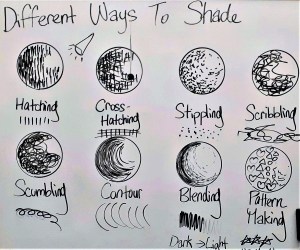 Different Ways To Shade
Hatching
Cross-
Hatching
Stippling
Scribbling
Scumbling
Contour
Blending
Pattern
Making
Dark → Light